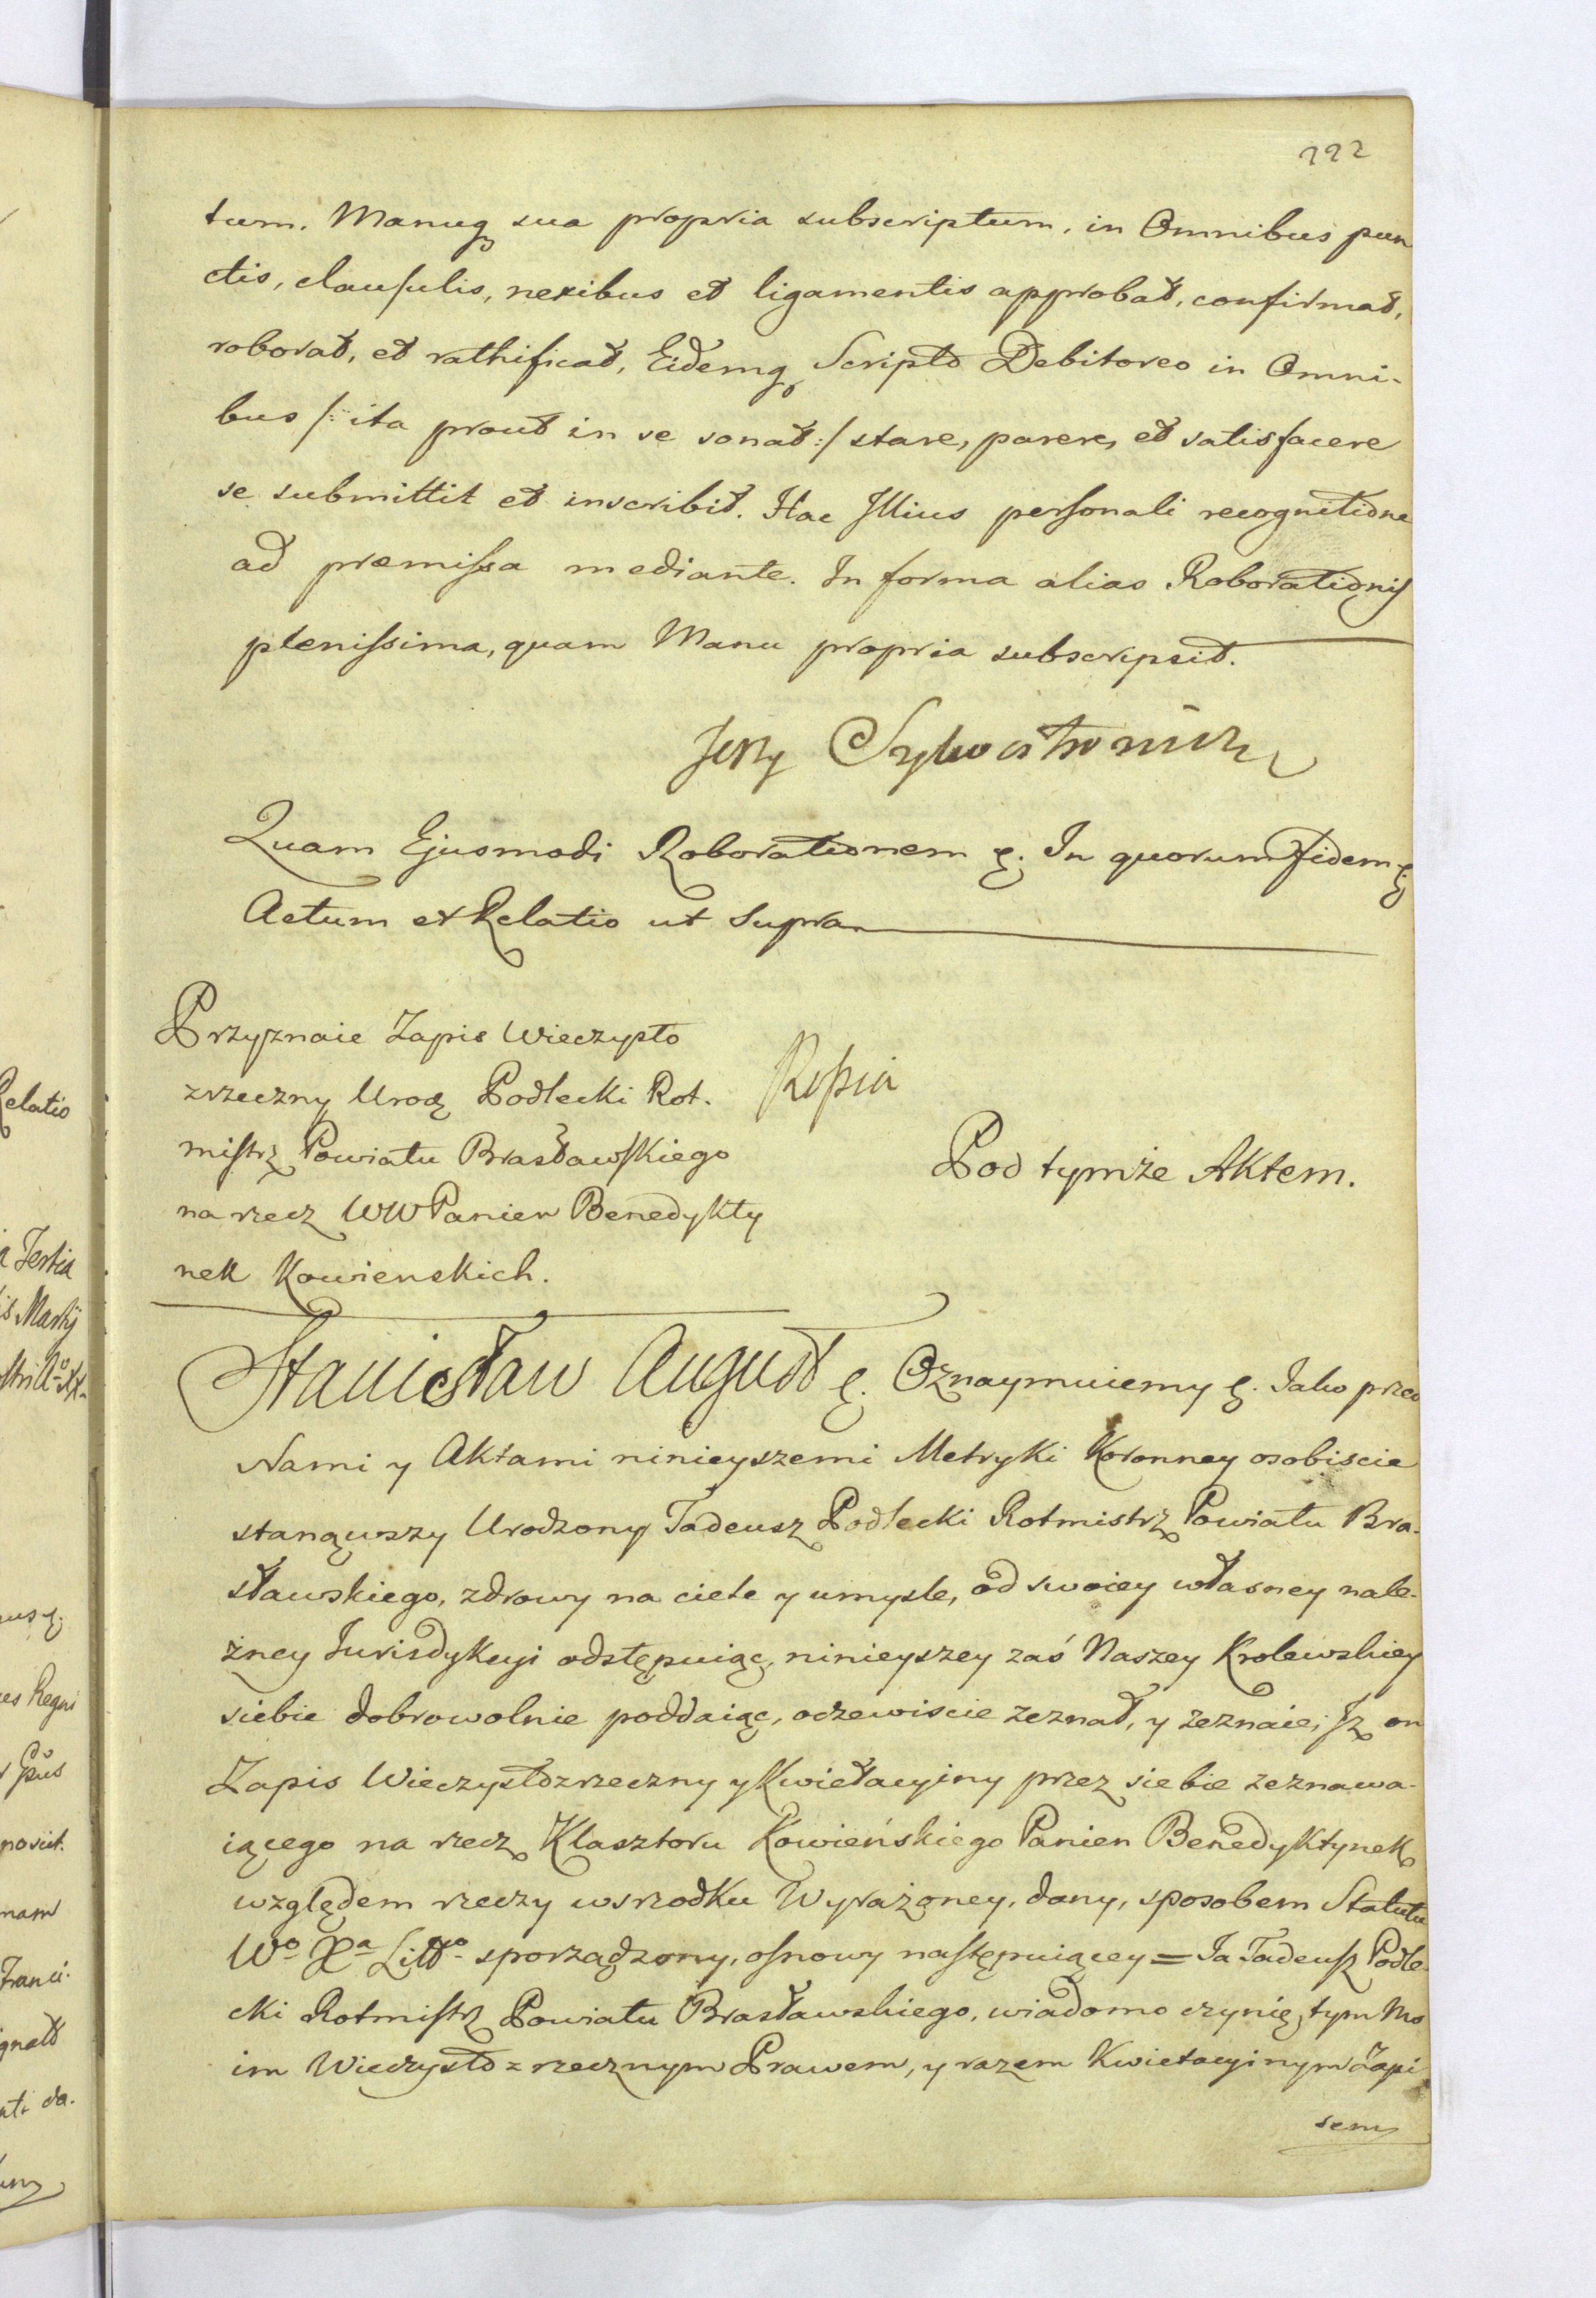 222
tum. Manuq sua propria subscriptum, in Omnibus pun
ctis, clausulis, nexibus et ligamentis approbat, confirmat,
roborat, et rathificat, Eidemq Scripto Debitoreo in Omni-
bus /: ita prout in se sonat :/ stare, parere, et satisfacere
se submittit et inscribit. Hac Illius personali recognitione
ad præmissa mediante. In forma alias Roborationis
plenissima, quam Manu propria subscripsit.
Jerzy Sylwestrowicz
Quam Ejusmodi Roborationem &. In quorum Fidem &.
Actum et Relatio ut Supra
Przyznaie Zapis Wieczysto
zrzeczny Urodz Podlecki Rot.
mistrz Powiatu Brasławskiego
na rzecz WW Panien Benedykty
nek Kowienskich.
Kopia
Pod tymże Aktem.
Stanisław August &. Oznaymuiemy &. Jako przed
Nami y Aktami ninieyszemi Metryki Koronney osobiscie
stanąwszy Urodzony Tadeusz Podlecki Rotmistrz Powiatu Bra-
sławskiego, zdrowy na ciele y umysle, od swoiey własney nale-
żney Jurisdykcyi odstępuiąc, ninieyszey zaś Naszey Krolewskiey
siebie dobrowolnie poddaiąc, oczewiscie zeznał, y zeznaie, Jż on
Zapis Wieczystozrzeczny y Kwietacyiny przez siebie zeznawa-
iącego na rzecz Klasztoru Kowieńskiego Panien Benedyktynek
względem rzeczy wsrzodku Wyrażoney, dany, sposobem Statutu
Wo Xa Litto sporządzony, osnowy następuiącey = Ja Tadeusz Podle-
cki Rotmistrz Powiatu Brasławskiego, wiadomo czynię, tym Mo
im Wieczysto zrzecznym Prawem, y razem Kwietacyinym Zapi
sem